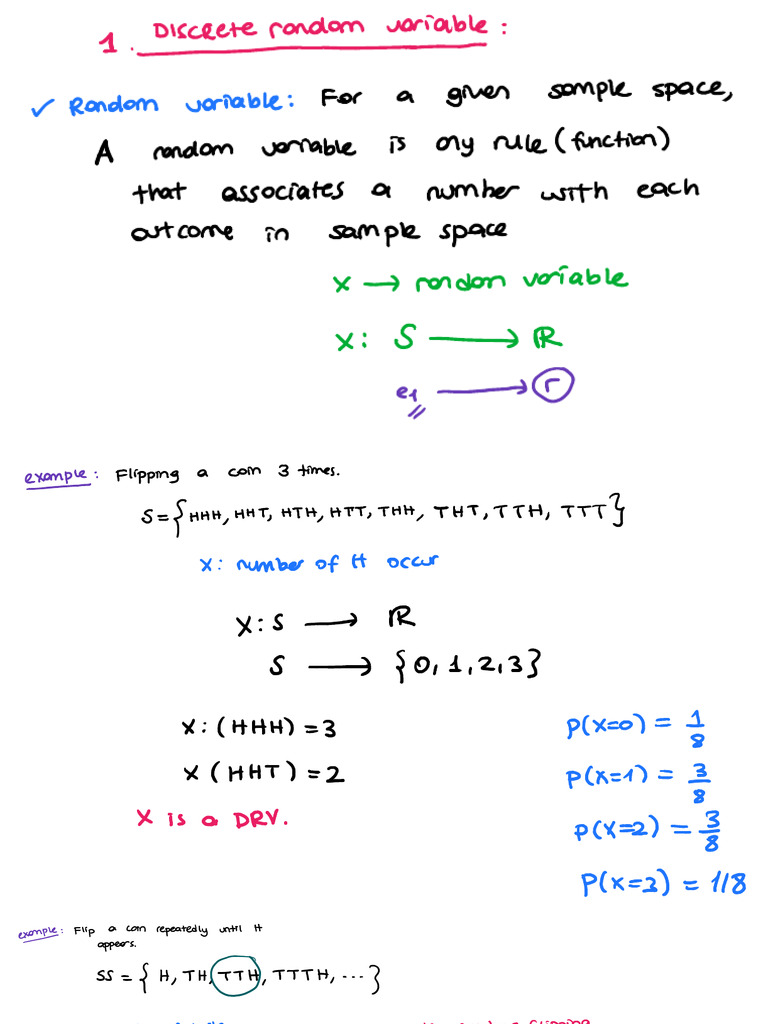 1. Discrete random variable :
✓ Random variable: For a given sample space,
A random variable is any rule (function)
that associates a number with each
outcome in sample space
X → random variable
X: S → ℝ
e1 → r
example: Flipping a coin 3 times.
S={HHH, HHT, HTH, HTT, THH, THT, TTH, TTT}
X: number of H occur
X: S → ℝ
S → {0, 1, 2, 3}
X: (HHH) = 3
X (HHT) = 2
X is a DRV.
P(X=0) = 1/8
P(X=1) = 3/8
P(X=2) = 3/8
P(X=3) = 1/8
example: Flip a coin repeatedly until H
appears.
SS = { H, TH, TTH, TTTH, ... }